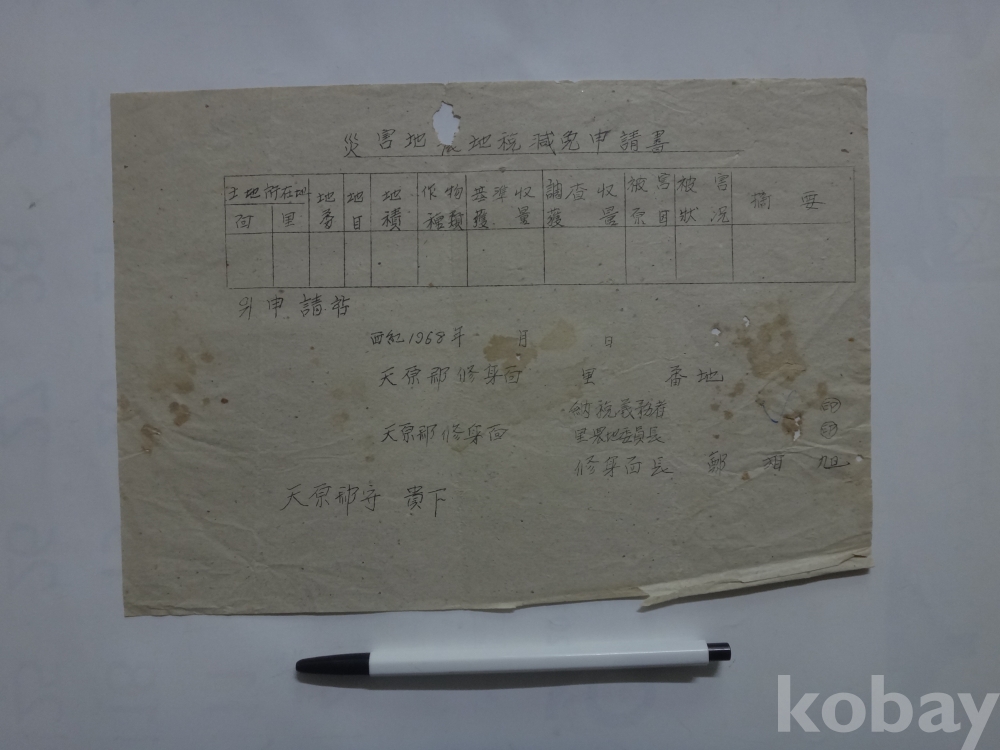 災害地 地稅減免申請書
土地所在地 地番 地目 地積 作物種類 基準收穫量 調查收穫量 被害原因 被害狀況 摘要
面 里
위 申請함
西紀1968年 月 日
天原郡修身面 里 番地
納稅義務者 ㊞
天原郡修身面 里 地委員長 ㊞
修身面長 鄭 旭
天原郡守 貴下
kobay